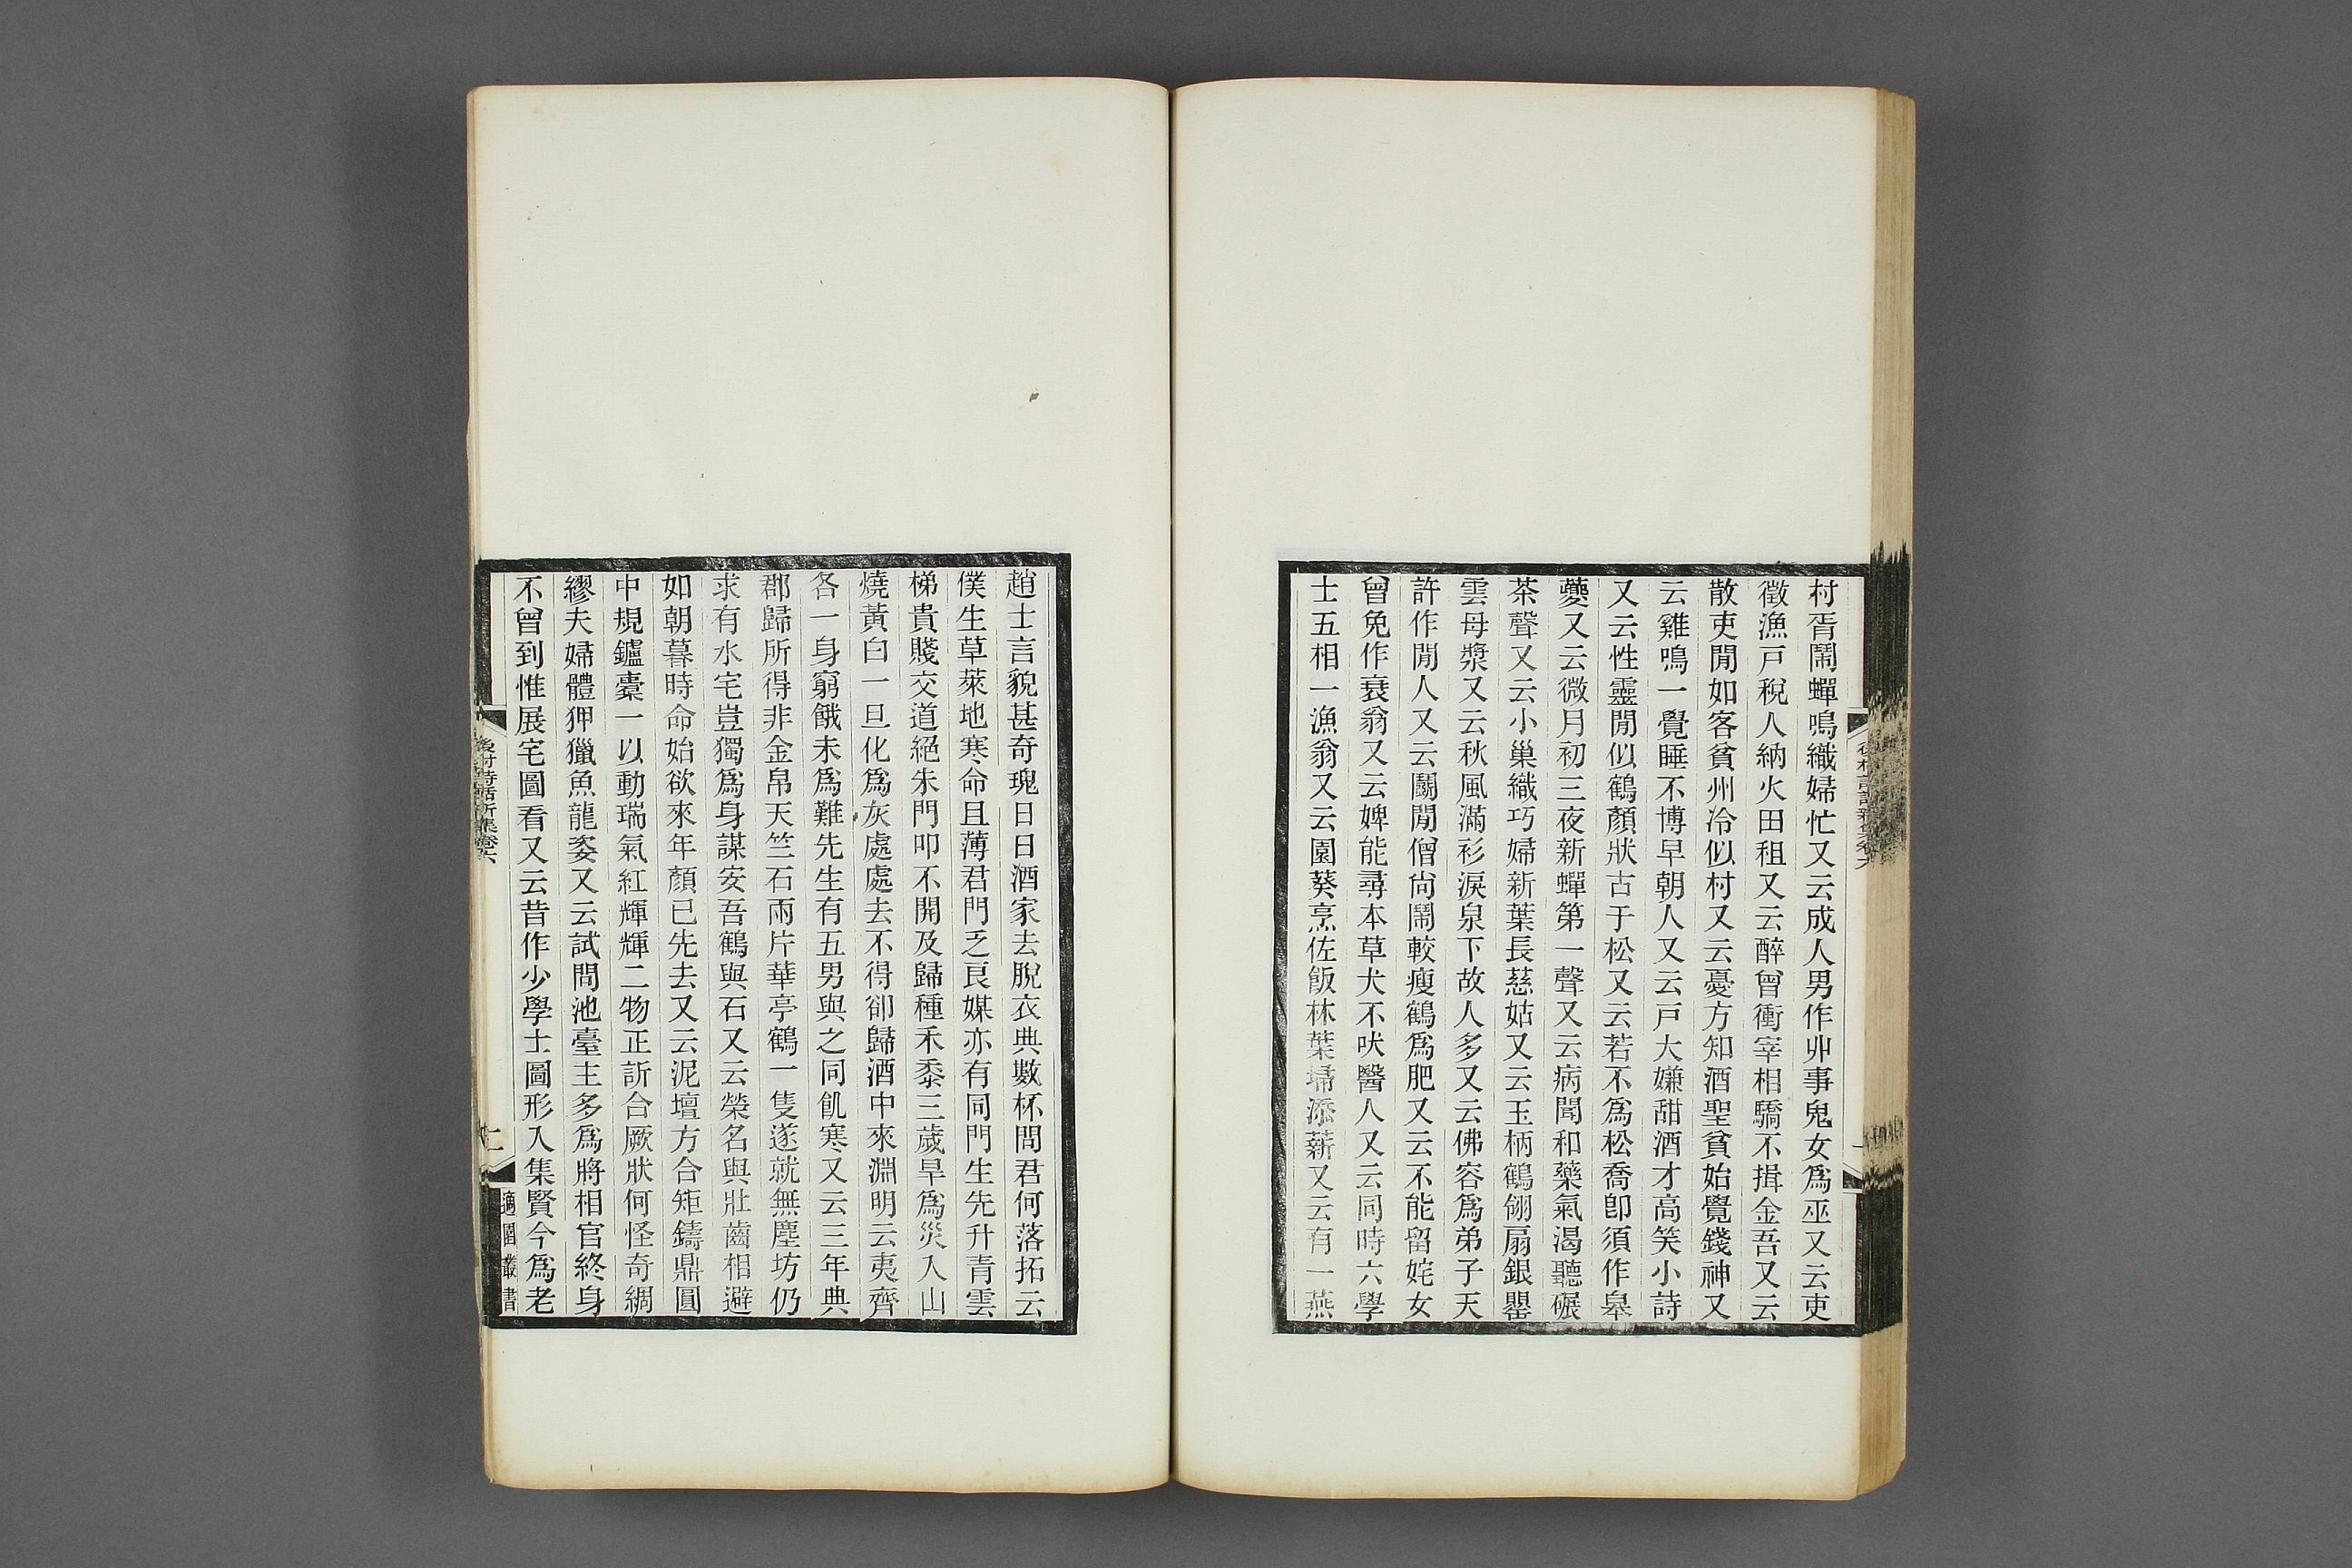 村胥鬧蟬鳴織婦忙又云成人男作丱事鬼女爲巫又云吏
徵漁戸稅人納火田租又云醉曾衝宰相驕不揖金吾又云
散吏閒如客貧州冷似村又云憂方知酒聖貧始覺錢神又
云雞鳴一覺睡不博早朝人又云戸大嫌甜酒才高笑小詩
又云性靈閒似鶴顏狀古于松又云若不爲松喬卽須作皋
夔又云微月初三夜新蟬第一聲又云病聞和藥氣渴聽碾
茶聲又云小巢織巧婦新葉長慈姑又云玉柄鶴翎扇銀罌
雲母漿又云秋風滿衫淚泉下故人多又云佛容爲弟子天
許作閒人又云鬭閒僧尙鬧較瘦鶴爲肥又云不能留姹女
曾免作衰翁又云婢能尋本草犬不吠醫人又云同時六學
士五相一漁翁又云園葵烹佐飯林葉埽添薪又云有一燕
後村詩話新集卷六
趙士言貌甚奇瑰日日酒家去脫衣典數杯問君何落拓云
僕生草萊地寒命且薄君門乏良媒亦有同門生先升青雲
梯貴賤交道絕朱門叩不開及歸種禾黍三歲旱爲災入山
燒黃白一旦化爲灰處處去不得卻歸酒中來淵明云夷齊
各一身窮餓未爲難先生有五男與之同飢寒又云三年典
郡歸所得非金帛天竺石兩片華亭鶴一隻遂就無塵坊仍
求有水宅豈獨爲身謀安吾鶴與石又云榮名與壯齒相避
如朝暮時命始欲來年顏已先去又云泥壇方合矩鑄鼎圓
中規鑪橐一以動瑞氣紅輝輝二物正訢合厥狀何怪奇綢
繆夫婦體狎獵魚龍姿又云試問池臺主多爲將相官終身
不曾到惟展宅圖看又云昔作少學士圖形入集賢今爲老
後村詩話新集卷六
二
適園叢書